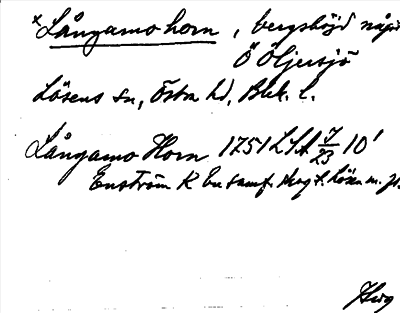 *Långamo horn, bergshöjd något
Ö Öljersjö
Lösens sn, Östra hd, Blek. l.
Långamo Horn 1751 LSA 7/23 10'
Enström K Bn samf. skog t. Lösen m. fl.